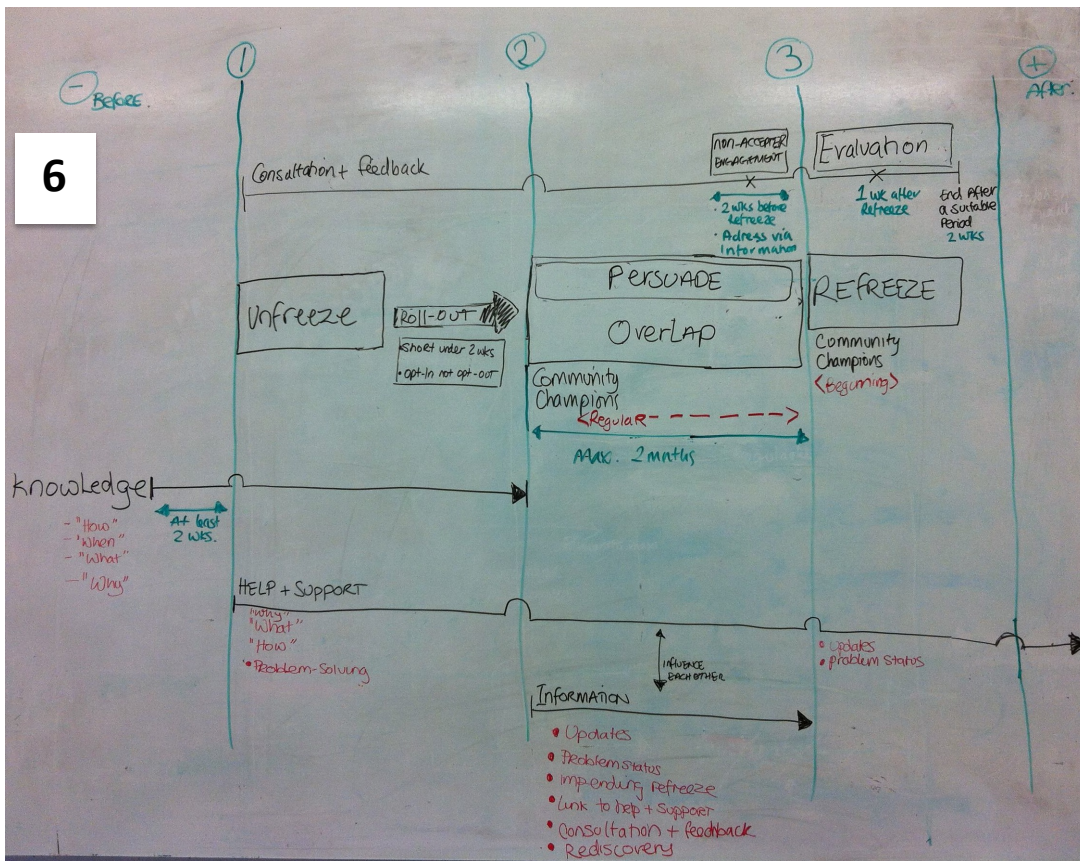 1
2
3
+
After.
-
BEFORE.
6
Consultation + feedback
NON-ACCEPTER
ENGAGEMENT
Evaluation
• 2 wks before
Refreeze
• Adress via
Information
1 wk after
Refreeze
End After
a suitable
Period
2 wks
Unfreeze
ROLL-OUT
• Short under 2 wks
• opt-in not opt-out
PERSUADE
OVERLAP
REFREEZE
Community
Champions
<Regular>
Max. 2 mnths
Community
Champions
<Beginning>
Knowledge
At least
2 wks.
- "How"
- "When"
- "What"
- "Why"
HELP + SUPPORT
"Why"
"What"
"How"
• Problem-Solving
INFLUENCE
EACH OTHER
• Updates
• problem status
INFORMATION
• Updates
• Problem status
• impending refreeze
• Link to help + Support
• Consultation + feedback
• Rediscovery